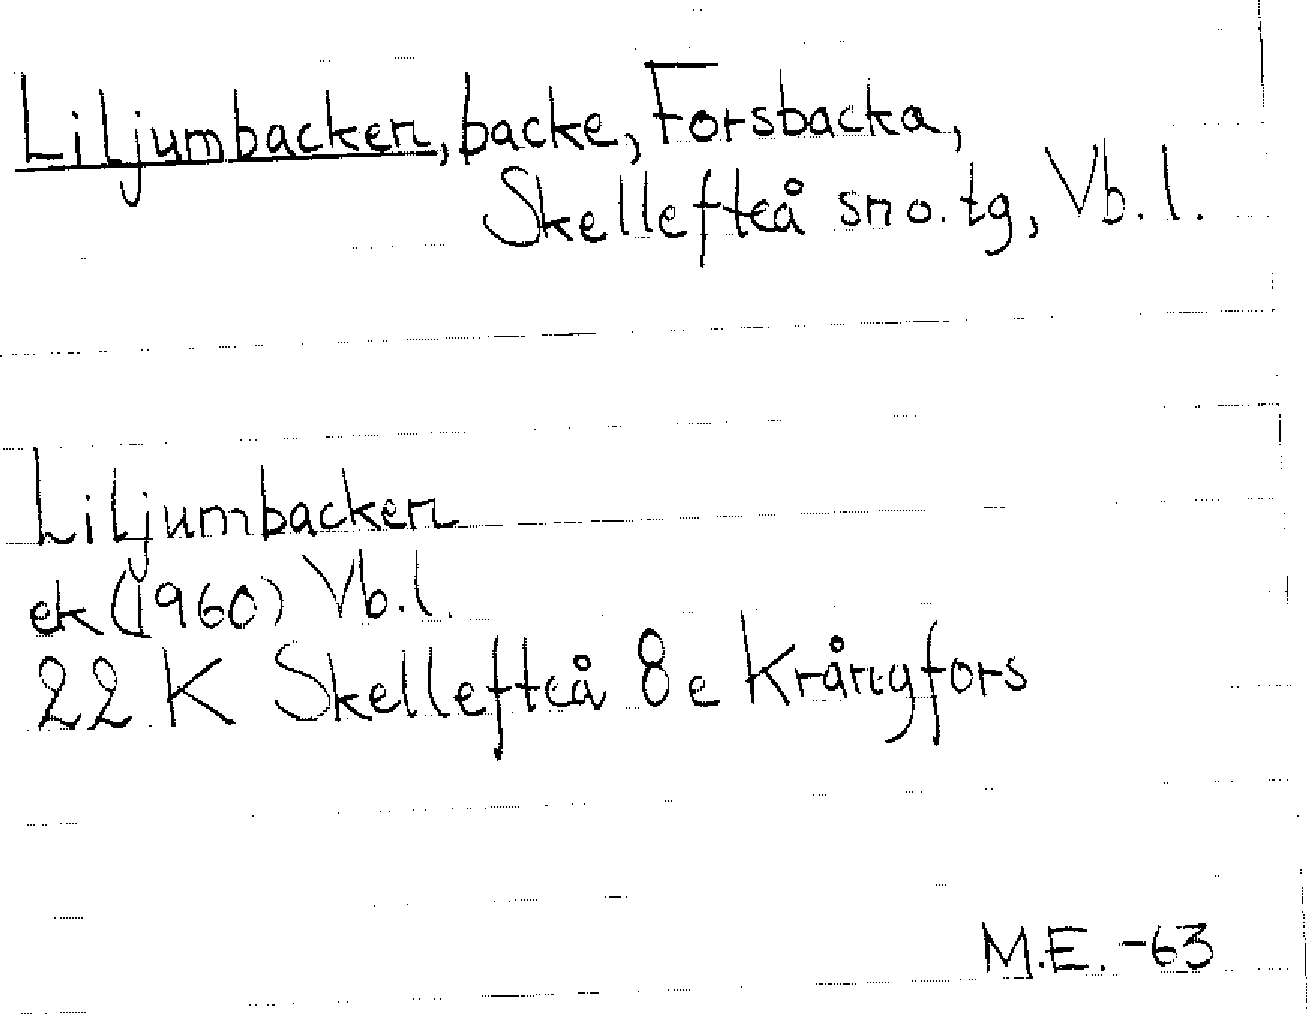 Liljumbacken, backe, Forsbacka,
Skellefteå sn o. tg, Vb. l.
Liljumbacken
ek (1960) Vb. l.
22 K Skellefteå 8e Krångfors
M.E. -63